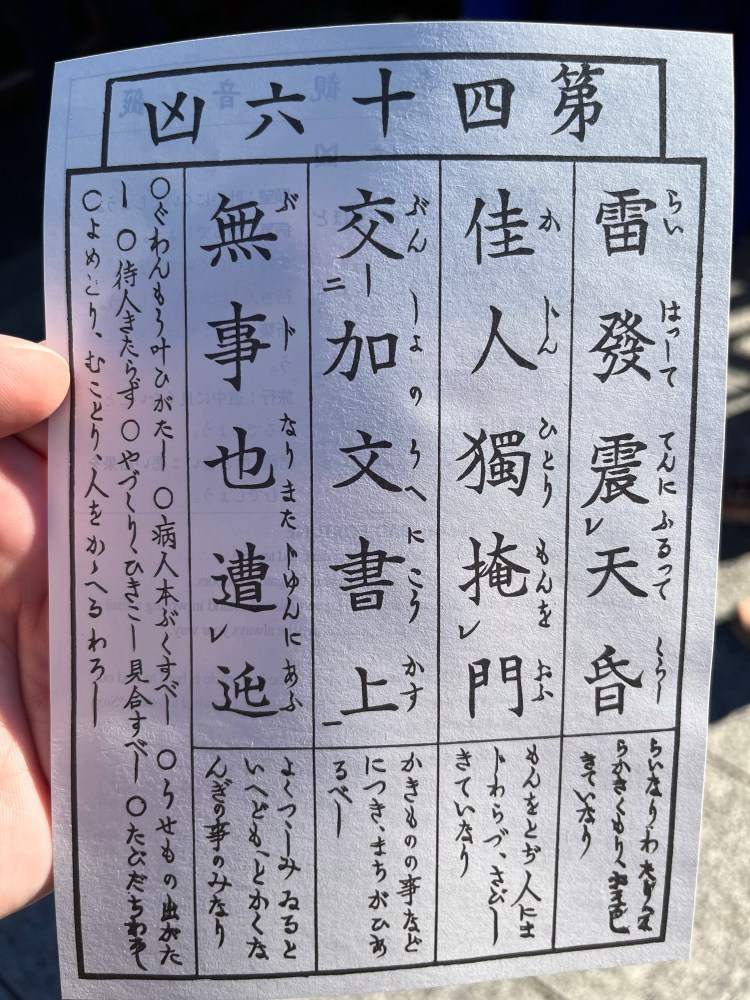 第四十六凶
らい はつして てんに ふるつて くらし
雷發震レ天昏
か じん ひとり もんを おふ
佳人獨掩レ門
ぶん しよ の うへ に こう かす
交二加文書上一
ぶ じ なり また じゆんに あふ
無事也遭レ迍
らいなり、わ
らかきくもり、
きていなり
もんをとぢ人には
じわらづ、さびし
きていなり
かきものの事など
につき、まちがひあ
るべし
よくつゝしみゐると
いへどもへとかくな
んぎの事のみなり
○ぐわんもう叶ひがたし ○病人本ぶくすべし ○うせもの出がた
し ○待人きたらず ○やづくり、ひきこし見合すべし ○たびだちわろし
○よめとり、むことり、人をかゝへるわろし